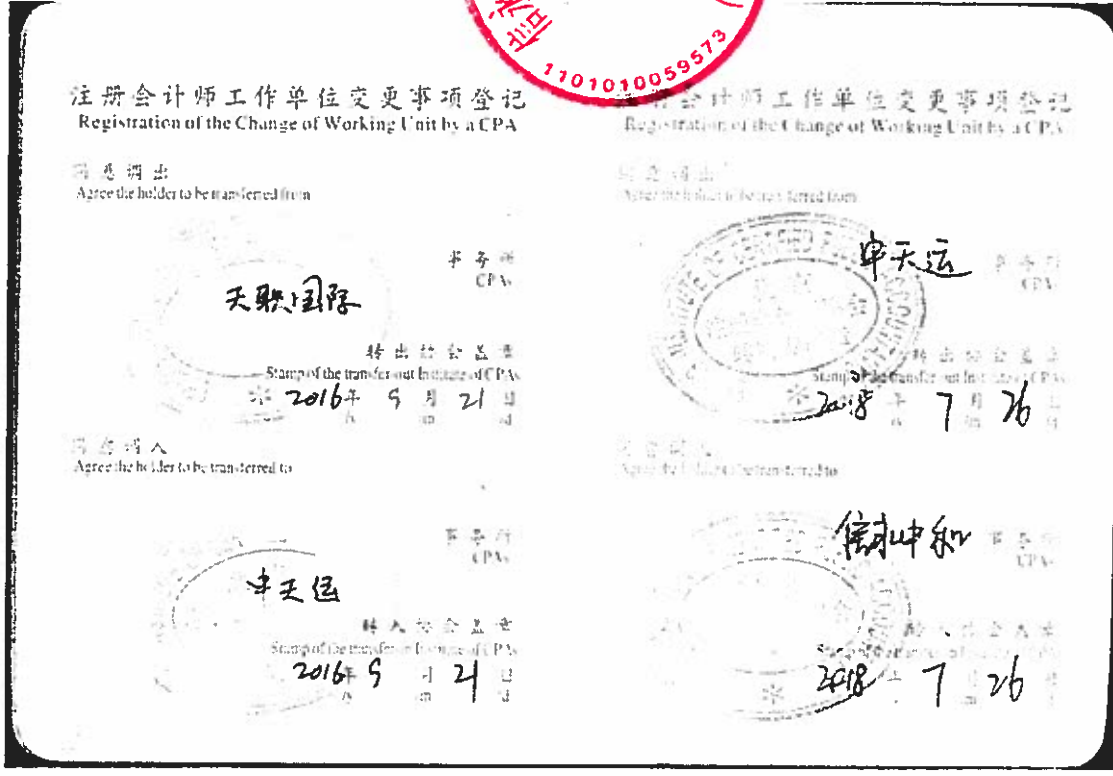 1101010059573
注册会计师工作单位变更事项登记
Registration of the Change of Working Unit by a CPA
同意调出
Agree the holder to be transferred from
天职国际
事务所
CPAs
转出协会盖章
Stamp of the transfer-out Institute of CPAs
2016年 9月 21日
/y /m /d
同意调入
Agree the holder to be transferred to
事务所
CPAs
中天运
转入协会盖章
Stamp of the transfer-in Institute of CPAs
2016年 9月 21日
/y /m /d
会计师工作单位变更事项登记
Registration of the Change of Working Unit by a CPA
同意调出
Agree the holder to be transferred from
中天运
事务所
CPAs
INSTITUTE OF CERTIFIED
转出协会盖章
Stamp of the transfer-out Institute of CPAs
2018年 7月 26日
同意调入
Agree the holder to be transferred to
信永中和
事务所
CPAs
2018年 7月 26日